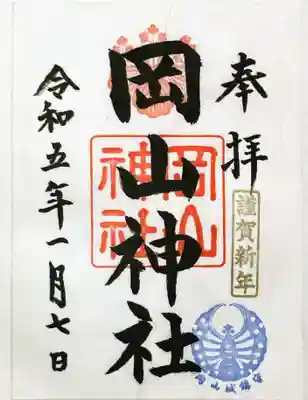 奉拝
謹賀新年
岡山神社
岡山神社
令和五年一月七日